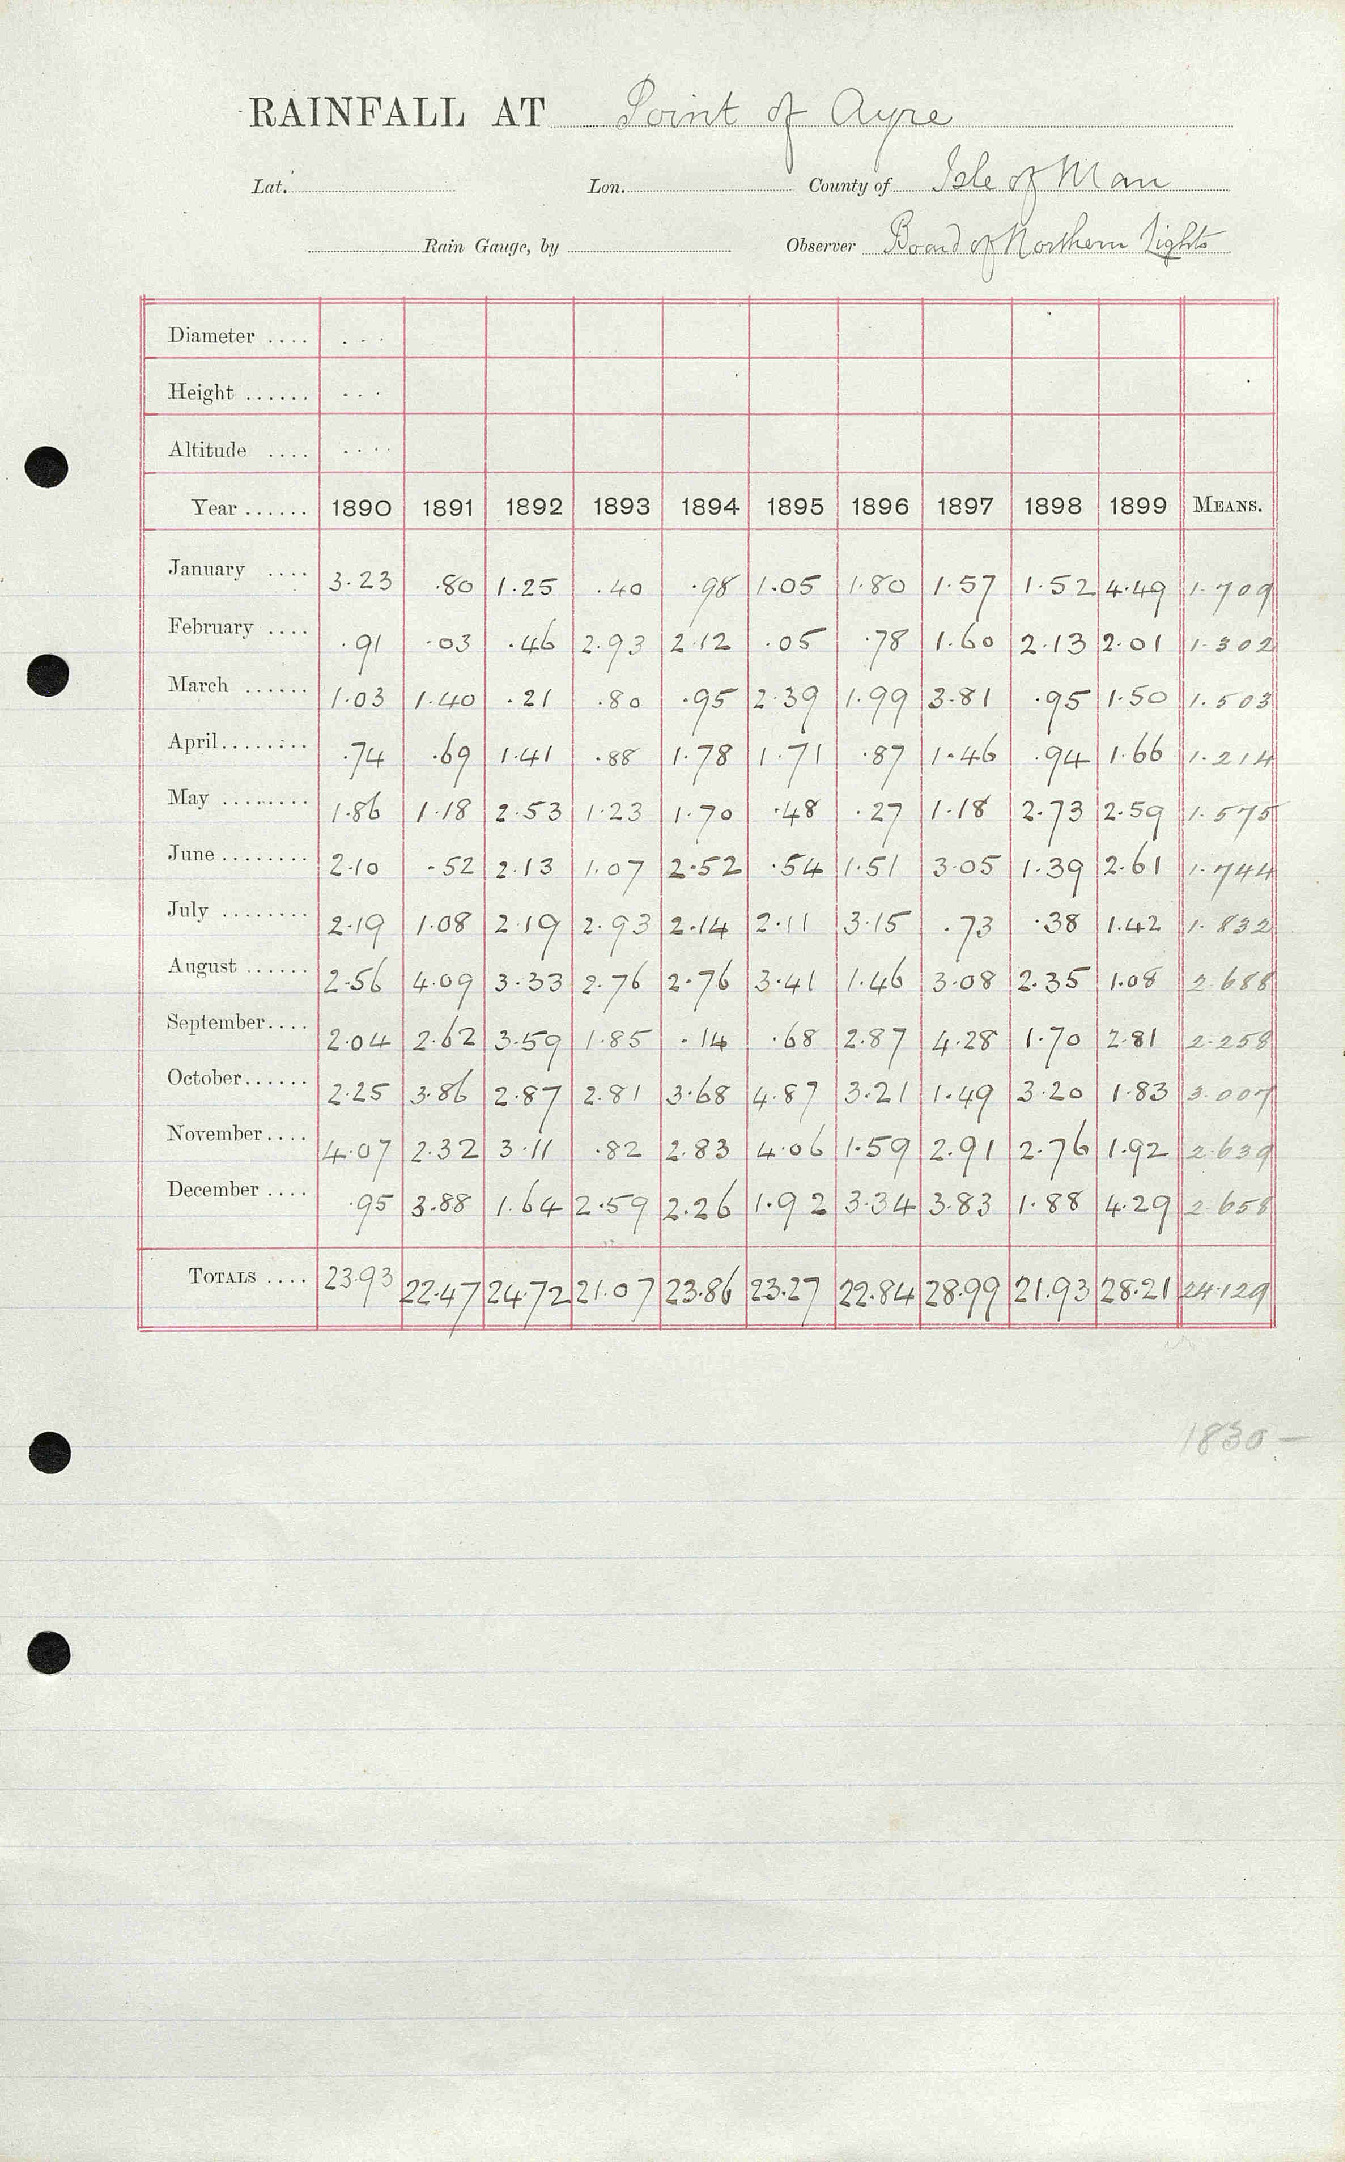 RAINFALL AT Point of Ayre
Lat. Lon. County of Isle of Man
Rain Gauge, by Observer Board of Northern Lights
Diameter ....
Height ......
Altitude ....
Year ...... 1890 1891 1892 1893 1894 1895 1896 1897 1898 1899 MEANS.
January .... 3.23 .80 1.25 .40 .98 1.05 1.80 1.57 1.52 4.49 1.709
February .... .91 .03 .46 2.93 2.12 .05 .78 1.60 2.13 2.01 1.302
March ...... 1.03 1.40 .21 .80 .95 2.39 1.99 3.81 .95 1.50 1.503
April........ .74 .69 1.41 .88 1.78 1.71 .87 1.46 .94 1.66 1.214
May ........ 1.86 1.18 2.53 1.23 1.70 .48 .27 1.18 2.73 2.59 1.575
June ........ 2.10 .52 2.13 1.07 2.52 .54 1.51 3.05 1.39 2.61 1.744
July ........ 2.19 1.08 2.19 2.93 2.14 2.11 3.15 .73 .38 1.42 1.832
August ...... 2.56 4.09 3.33 2.76 2.76 3.41 1.46 3.08 2.35 1.08 2.688
September.... 2.04 2.62 3.59 1.85 .14 .68 2.87 4.28 1.70 2.81 2.258
October...... 2.25 3.86 2.87 2.81 3.68 4.87 3.21 1.49 3.20 1.83 3.007
November.... 4.07 2.32 3.11 .82 2.83 4.06 1.59 2.91 2.76 1.92 2.639
December .... .95 3.88 1.64 2.59 2.26 1.92 3.34 3.83 1.88 4.29 2.658
TOTALS .... 23.93 22.47 24.72 21.07 23.86 23.27 22.84 28.99 21.93 28.21 24.129
1830-